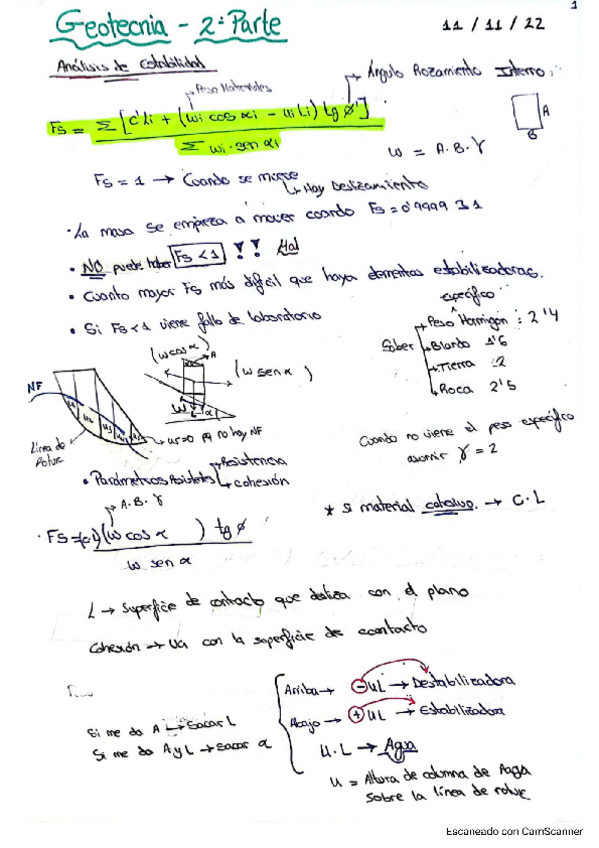 1
Geotecnia - 2ª Parte
11 / 11 / 22
Análisis de Estabilidad
Peso Materiales
Ángulo Rozamiento Interno.
Fs = Σ [c'Li + (wi cos αi - ui Li) tg ø']
Σ wi · sen αi
A
B
w = A. B. γ
Fs = 1 → Cuando se mueve
↳ Hay Deslizamiento
· La masa se empieza a mover cuando Fs = 0'9999
• NO puede haber Fs < 1 !! Mal
• Cuanto mayor Fs más difícil que haya elementos estabilizadoras.
• Si Fs < 1 viene fallo de laboratorio
específico
Saber
Peso Hormigón : 2'4
Blando 1'6
Tierra 2
Roca 2'5
(w cos α)
A
(w sen α)
W
α
NF
Línea de
Rotura
u5=0 pq no hay NF
Cuando no viene el peso específico
asumir γ = 2
• Parámetros
Resistencia
cohesión
A. B. γ
* Si material cohesivo. → C. L
· Fs = (w cos α ) tg ø
w sen α
L → Superficie de contacto que desliza con el plano
Cohesión → va con la superficie de contacto
Arriba → - uL → Destabilizadora
Abajo → + uL → Estabilizadora
Si me da A → sacar L
Si me da A y L → sacar α
u. L → Agua
u = Altura de columna de Agua
sobre la línea de rotura
Escaneado con CamScanner